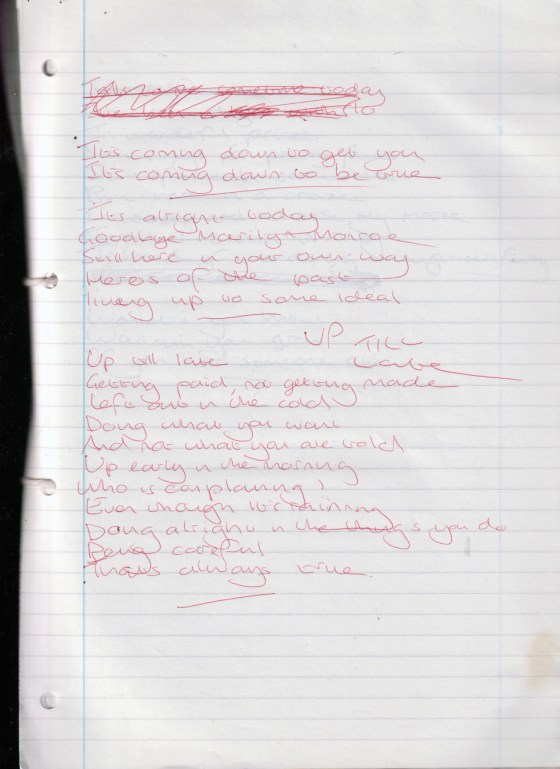 today
It's coming down to get you
It's coming down to be true
It's alright today
Goodbye Marilyn Monroe
Still here in your own way
Heros of the past
living up to some ideal
UP TILL
Late
Up till late
Getting paid, not getting made
Left out in the cold
Doing what you want
And not what you are told
Up early in the morning
Who is complaining?
Even though it's raining
Doing alright in the things you do
Being careful
That's always true.